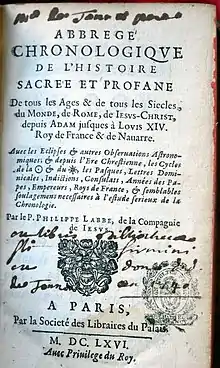 ABBREGÉ
CHRONOLOGIQVE
DE L'HISTOIRE
SACREE ET PROFANE
De tous les Ages & de tous les Siecles,
du MONDE, de ROME, de IESVS-CHRIST,
depuis ADAM jusques à LOVIS XIV.
Roy de France & de Navarre.
Avec les Eclipses & autres Obseruations Astrono-
miques; & depuis l'Ere Chrestienne, les Cycles
de la ☉ & du ☀, les Pasques, Lettres Domi-
nicales, Indictions, Consulats, Années des Pa-
pes, Empereurs, Roys de France, & semblables
soulagemens necessaires à l'estude serieux de la
Chronologie.
Par le P. PHILIPPE LABBE, de la Compagnie
de IESVS
A PARIS,
Par la Societé des Libraires du Palais.
M. DC. LXVI.
Avec Privilege du Roy.